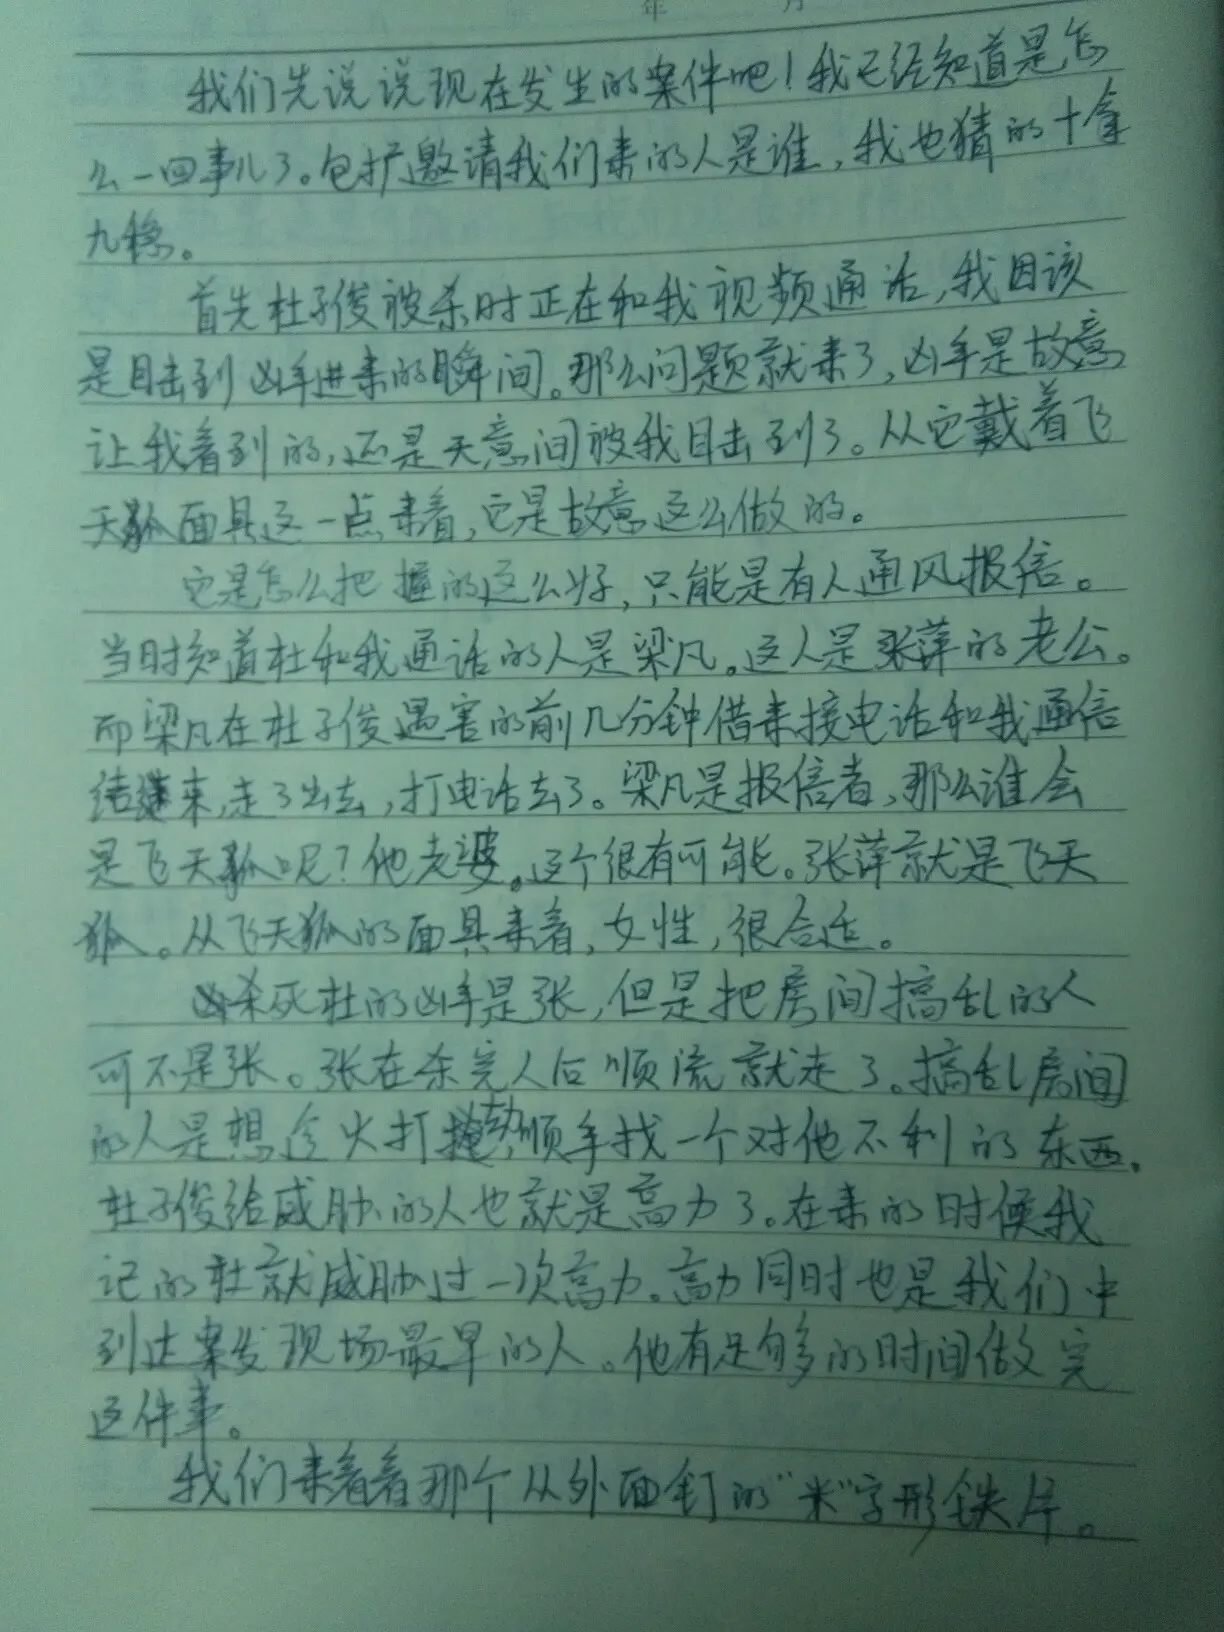 年 月
我们先说说现在发生的案件吧！我已经知道是怎
么一回事儿了。包扩邀请我们来的人是谁，我也猜的十拿
九稳。
首先杜子俊被杀时正在和我视频通话，我因该
是目击到凶手进来的瞬间。那么问题就来了，凶手是故意
让我看到的，还是天意间被我目击到了。从它戴着飞
天狐面具这一点来看，它是故意这么做的。
它是怎么把握的这么好，只能是有人通风报信。
当时知道杜和我通话的人是梁凡。这人是张萍的老公。
而梁凡在杜子俊遇害的前几分钟借来接电话和我通信
结 来，走了出去，打电话去了。梁凡是报信者，那么谁会
是飞天狐呢？他老婆。这个很有可能。张萍就是飞天
狐。从飞天狐的面具来看，女性，很合适。
杀死杜的凶手是张，但是把房间搞乱的人
可不是张。张在杀完人后顺流就走了。搞乱房间
的人是想趁火打劫，顺手找一个对他不利的东西。
杜子俊给威胁的人也就是高力了。在来的时候我
记的杜就威胁过一次高力。高力同时也是我们中
到达案发现场最早的人。他有足够的时间做完
这件事。
我们来看看那个从外面钉的“米”字形铁片。